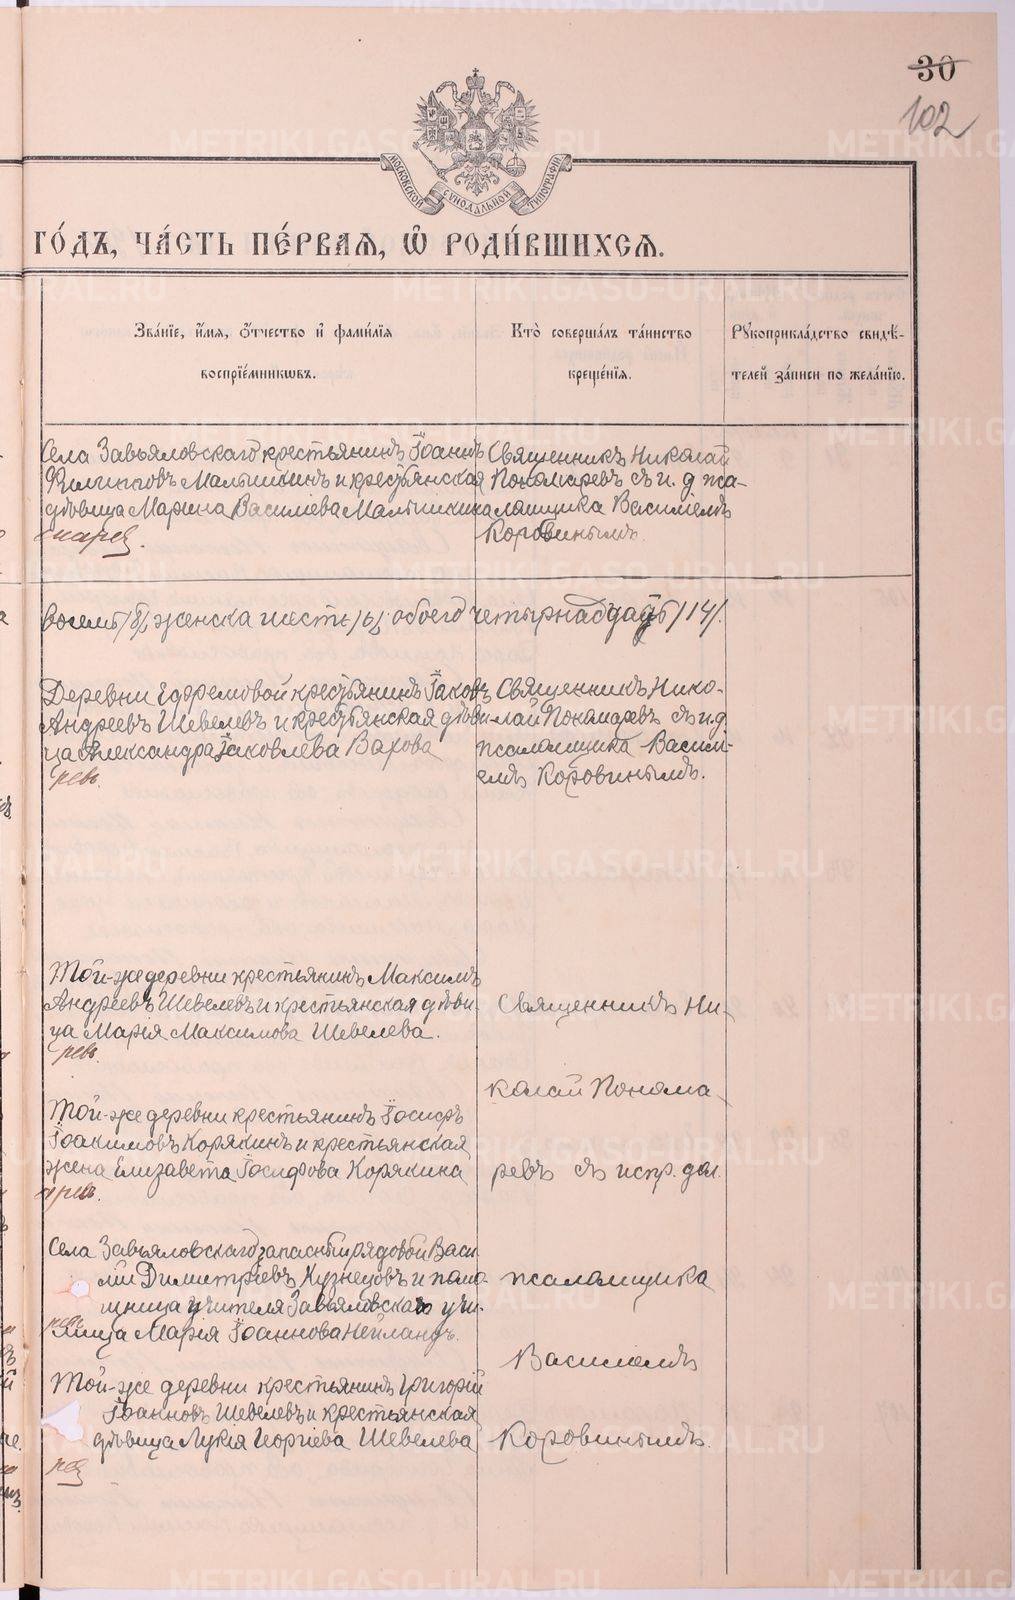 30
102
МОСКОВСКОЙ СѴНОДАЛЬНОЙ ТИПОГРАФІИ
ГО́ДЪ, ЧА́СТЬ ПЕ́РВАѦ, Ѽ РОДИ́ВШИХСѦ.
Зва́нїе, и҆́мѧ, ѻ҆́тчество и҆ фами́лїѧ
воспрїе́мникѡвъ.
Кто̀ соверша́лъ та́инство
креще́нїѧ.
Рꙋкоприкла́дство свидѣ́-
телей за́писи по жела́нїю.
Села Завьяловскаго крестьянинъ Іоаннъ
Филипповъ Малышкинъ и крестьянская
дѣвица Марина Василіева Малышкина
Священникъ Николай
Пономаревъ съ и. д. пса-
ломщика Василіемъ
Коровинымъ.
восемь /8/, женска шесть /6/, обоего четырнадцать /14/.
Деревни Ефремовой крестьянинъ Іаковъ
Андреевъ Шевелевъ и крестьянская дѣви-
ца Александра Іаковлева Вахова
Священникъ Нико-
лай Пономаревъ съ и. д.
псаломщика Васили-
емъ Коровинымъ.
Той-же деревни крестьянинъ Максимъ
Андреевъ Шевелевъ и крестьянская дѣви-
ца Марія Максимова Шевелева.
Той-же деревни крестьянинъ Іосифъ
Іоакимовъ Корякинъ и крестьянская
жена Елизавета Іосифова Корякина
Села Завьяловскаго запасный рядовой Васи-
лій Димитріевъ Кузнецовъ и помо-
щница учителя Завьяловскаго учи-
лища Марія Іоаннова Нейландъ.
Той-же деревни крестьянинъ Григорій
Іоанновъ Шевелевъ и крестьянская
дѣвица Лукія Георгіева Шевелева
Священникъ Ни-
колай Понома-
ревъ съ испр. дол.
псаломщика
Василіемъ
Коровинымъ.
METRIKI.GASO-URAL.RU